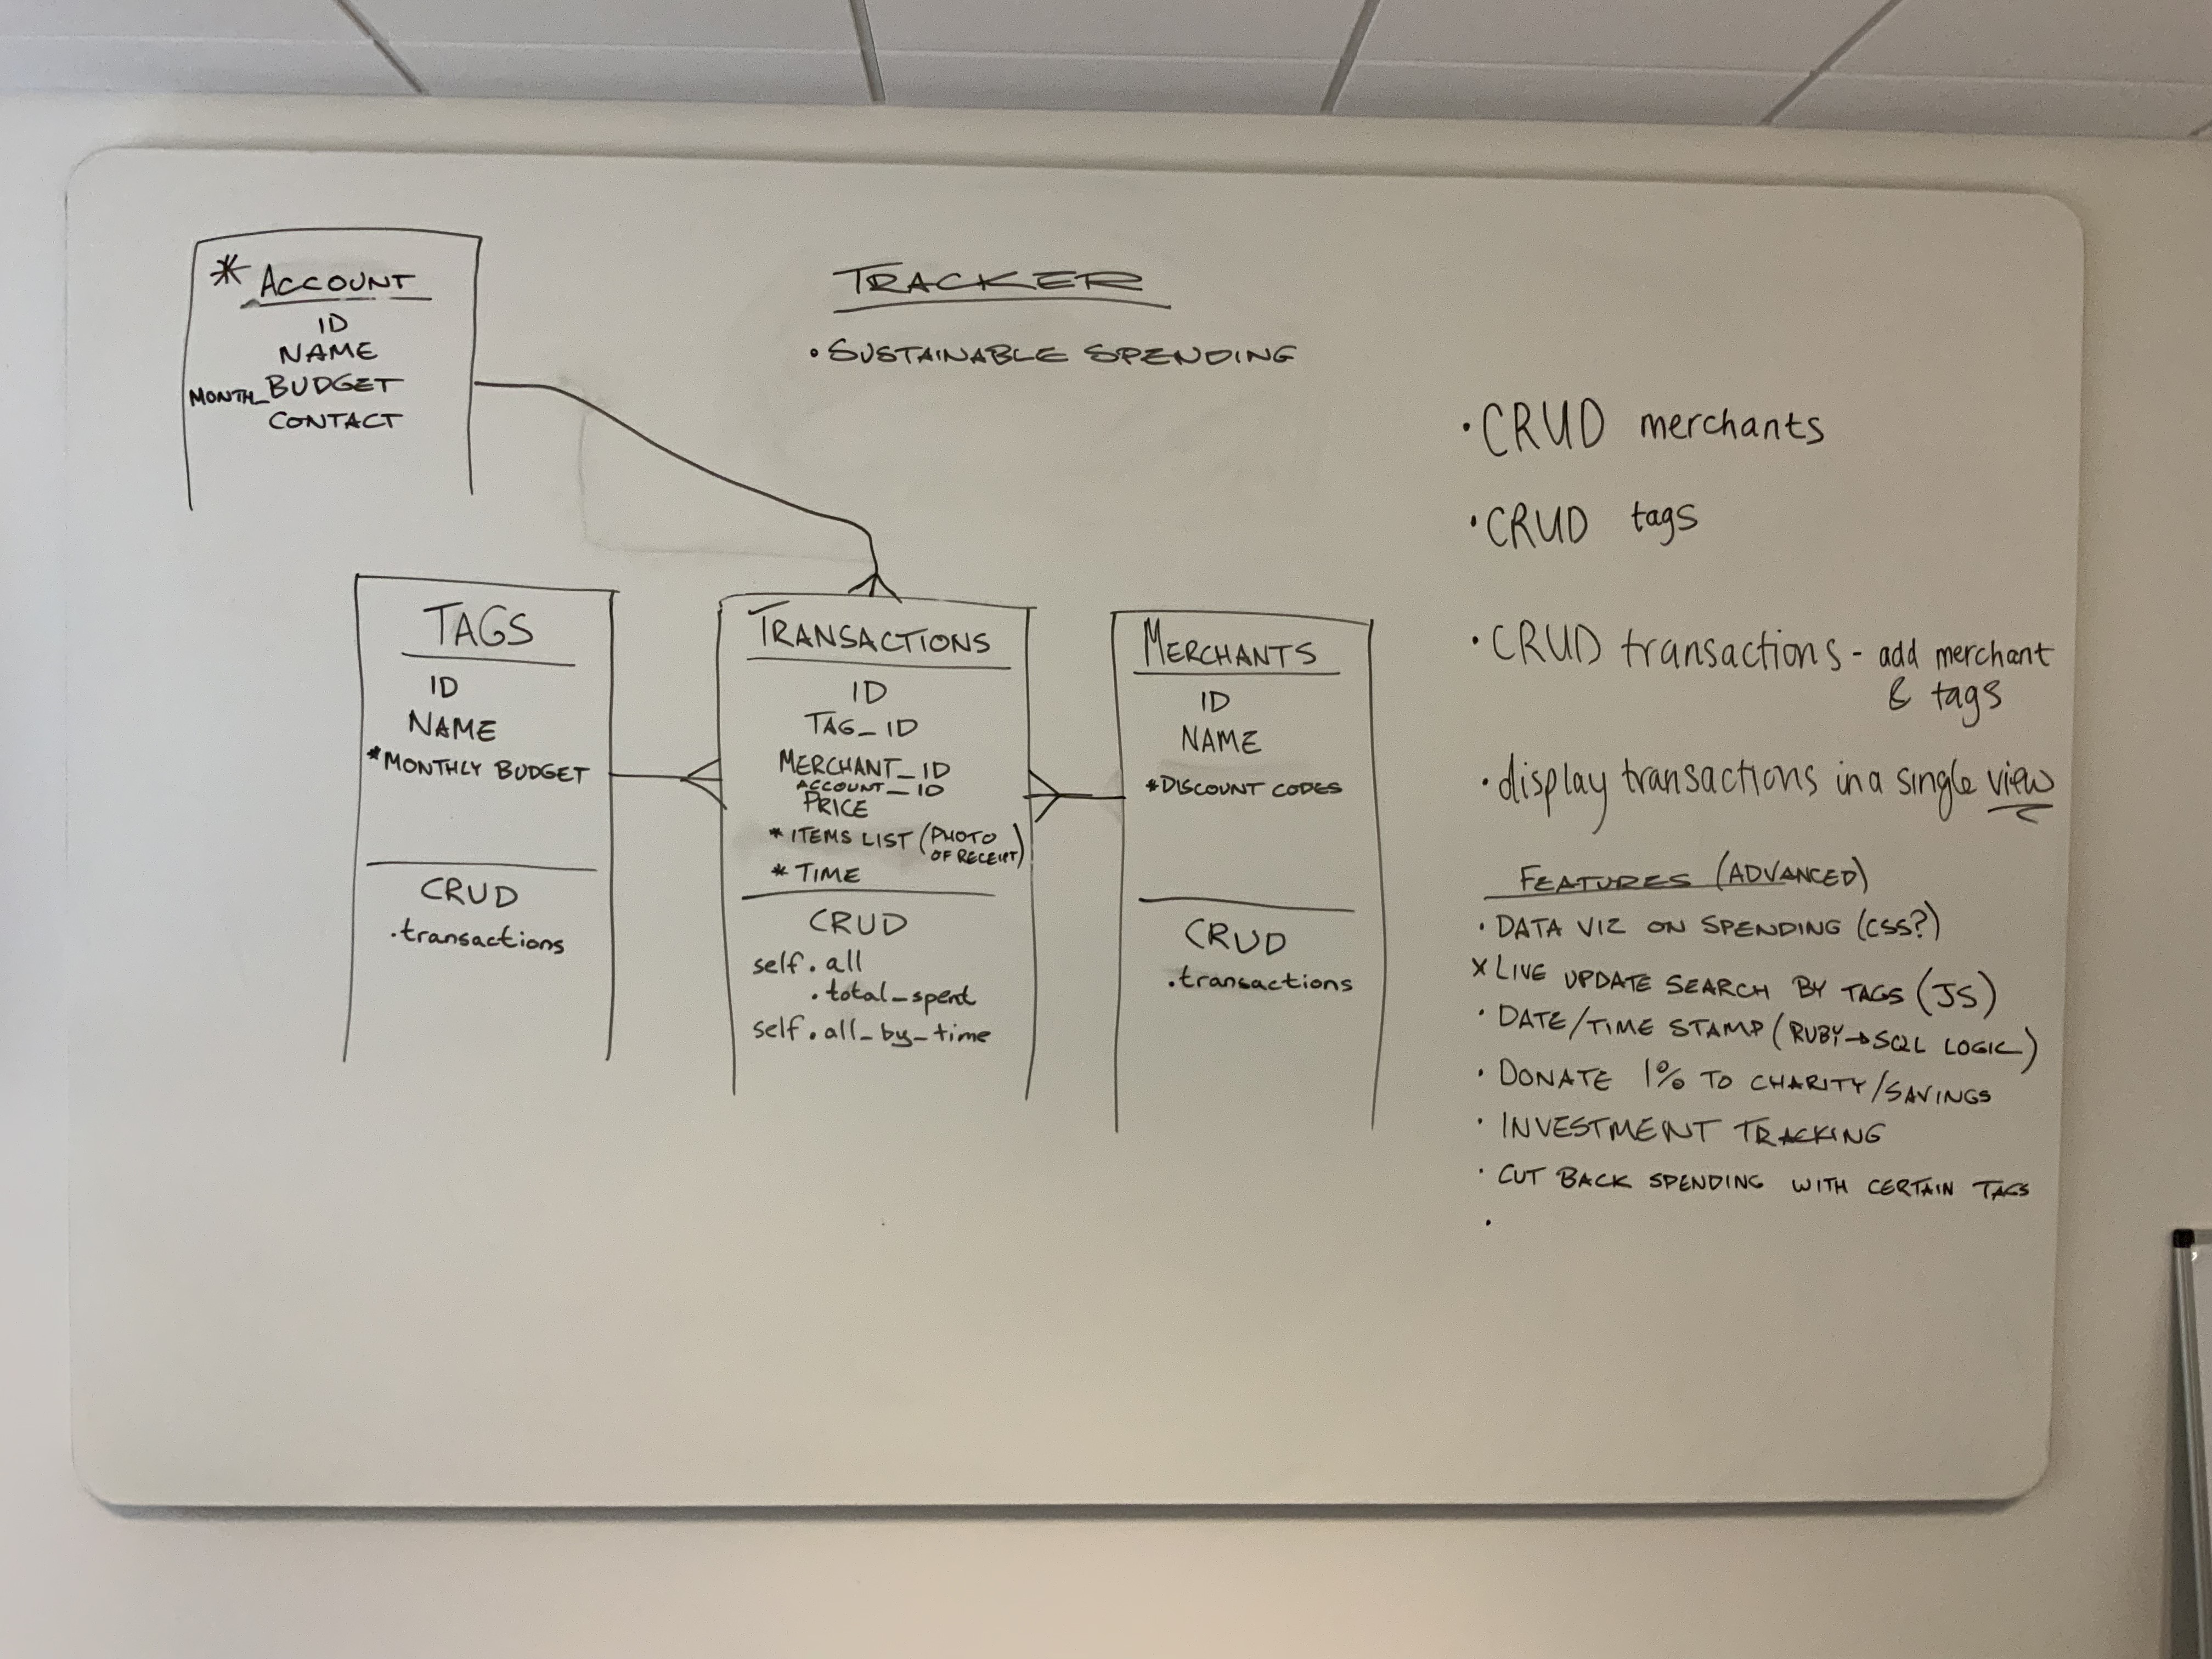 * ACCOUNT
ID
NAME
MONTH_BUDGET
CONTACT
TRACKER
• SUSTAINABLE SPENDING
TAGS
ID
NAME
*MONTHLY BUDGET
CRUD
.transactions
TRANSACTIONS
ID
TAG_ID
MERCHANT_ID
ACCOUNT_ID
PRICE
* ITEMS LIST (PHOTO
OF RECEIPT)
* TIME
CRUD
self.all
.total_spent
self.all_by_time
MERCHANTS
ID
NAME
*DISCOUNT CODES
CRUD
.transactions
• CRUD merchants
• CRUD tags
• CRUD transactions - add merchant
& tags
• display transactions in a single view
FEATURES (ADVANCED)
• DATA VIZ ON SPENDING (CSS?)
x LIVE UPDATE SEARCH BY TAGS (JS)
• DATE/TIME STAMP (RUBY→SQL LOGIC)
• DONATE 1% TO CHARITY/SAVINGS
• INVESTMENT TRACKING
• CUT BACK SPENDING WITH CERTAIN TAGS
•